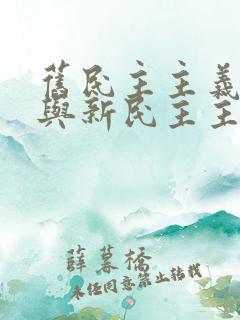 舊民主主義
與新民主主
薛暮橋
未經同意禁止轉載